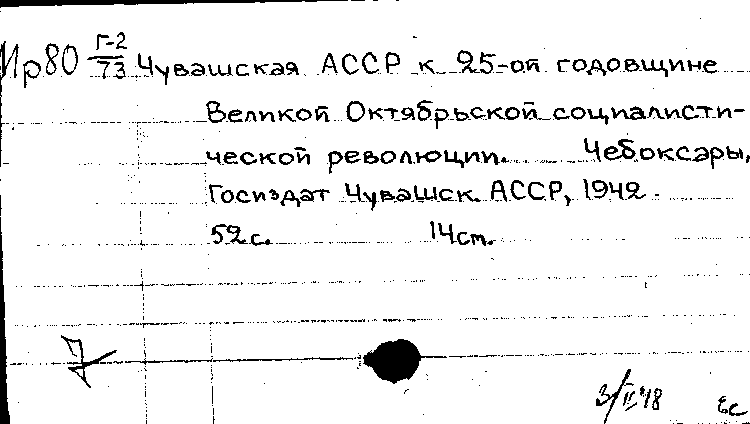 Ир80 Г-2/73 Чувашская АССР к 25-ой годовщине
Великой Октябрьской социалисти-
ческой революции. Чебоксары,
Госиздат Чувашск. АССР, 1942.
52с. 14см.
3/II 48 ЕС